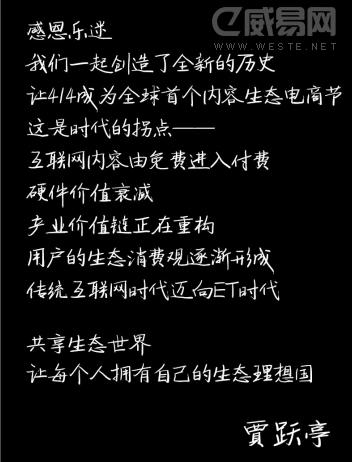 e威易网
WWW.WESTE.NET
感恩乐迷
我们一起创造了全新的历史
让414成为全球首个内容生态电商节
这是时代的拐点——
互联网内容由免费进入付费
硬件价值衰减
产业价值链正在重构
用户的生态消费观逐渐形成
传统互联网时代迈向ET时代
共享生态世界
让每个人拥有自己的生态理想国
贾跃亭